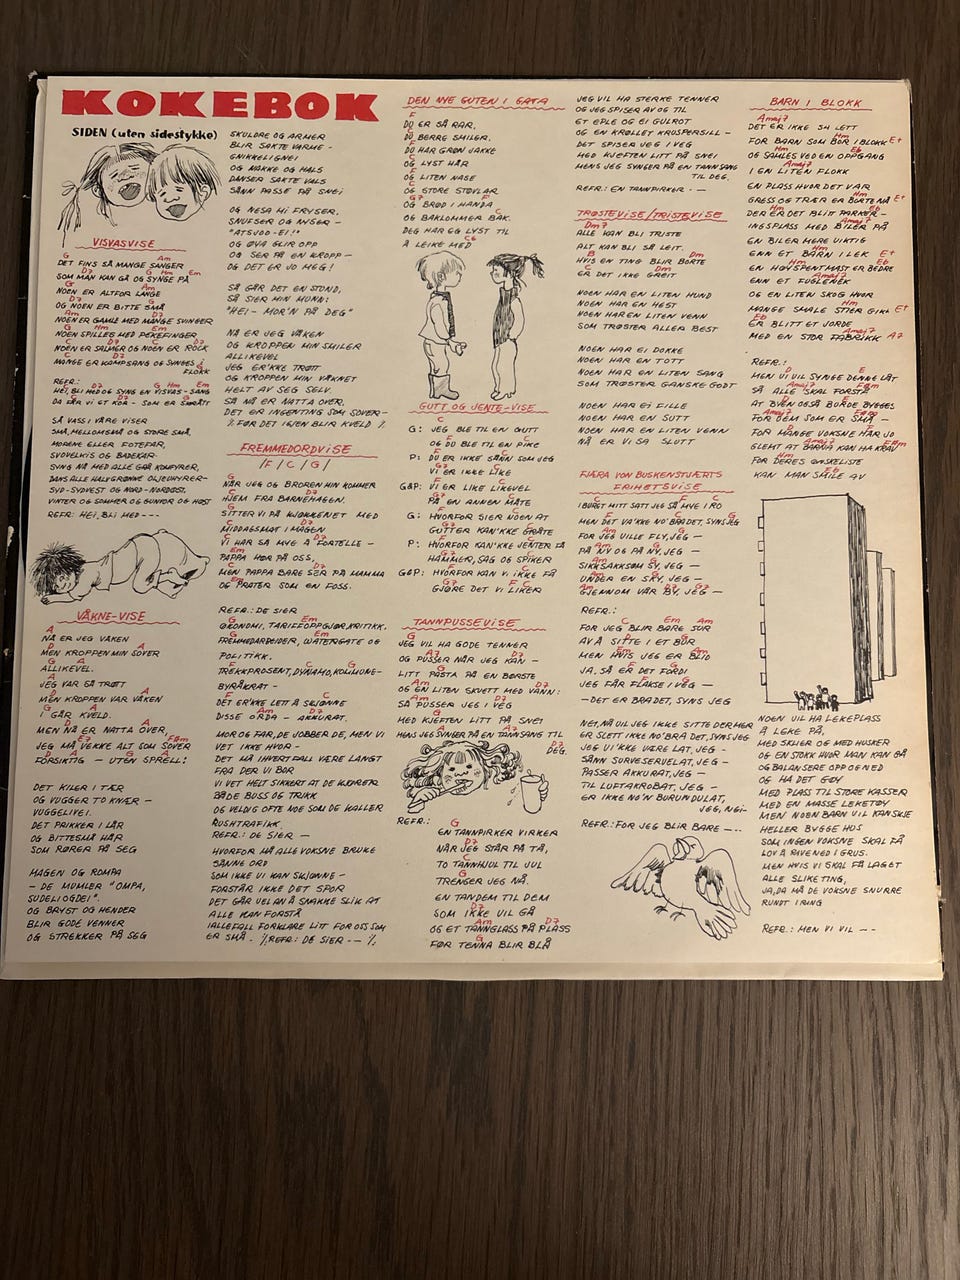 KOKEBOK
SIDEN (uten sidestykke)
VISVASVISE
G Am
DET FINS SÅ MANGE SANGER
D7 G Hm Em
SOM MAN KAN GÅ OG SYNGE PÅ
G Am
NOEN ER ALTFOR LANGE
D7 G
OG NOEN ER BITTE SMÅ
Am D7
NOEN ER GAMLE MED MANGE SVINGER
G Hm Em
NOEN SPILLES MED POKEFINGER
C D7 G
NOEN ER SALMER OG NOEN ER ROCK
C D7 G
MANGE ER KAMPSANG OG SYNGES I
FLOKK
REFR.: D7 G Hm Em
HEI, BLI MED OG SYNG EN VISVAS-SANG
C D7 G
DA BÅR VI ET KOR - SOM ER
SÅ VASS I VÅRE VISER
SMÅ, MELLOMSMÅ OG STORE SMÅ,
MORENE ELLER FOTEFAR,
SVOVELKIS OG BADEKAR.
SYNG NÅ MED ALLE GRÅ KOMFYRER,
DANS ALLE HALVGRØNNE OLJEHYRER-
SYD-SYDVEST OG NORD-NORDØST,
VINTER OG SOMMER OG GUNVOR OG HØST
REFR: HEI, BLI MED ---
VÅKNE-VISE
A
NÅ ER JEG VÅKEN
D A
MEN KROPPEN MIN SOVER
G A
ALLIKEVEL.
A
JEG VAR SÅ TRØTT
D A
MEN KROPPEN VAR VÅKEN
G A
I GÅR KVELD.
D A
MEN NÅ ER NATTA OVER,
E7 A F#m
JEG MÅ VEKKE ALT SOM SOVER
D A G A
FORSIKTIG - UTEN SPRELL!
DET KILER I TÆR
OG VUGGER TO KNÆR -
VUGGELIVEI.
DET PRIKKER I LÅR
OG BITTESMÅ HÅR
SOM RØRER PÅ SEG
MAGEN OG ROMPA
- DE MUMLER "OMPA,
SUDELIOGDEI".
OG BRYST OG HENDER
BLIR GODE VENNER
OG STREKKER PÅ SEG
SKULDRE OG ARMER
BLIR SAKTE VARME -
GNIKKELIGNEI
OG NAKKE OG HALS
DANSER SAKTE VALS
SÅNN PASSE PÅ SNEI
OG NESA MI FRYSER,
SNUFSER OG NYSER -
"ATSJOO-EI!"
OG ØYA GLIR OPP
OG SER PÅ EN KROPP -
OG DET ER JO MEG!
SÅ GÅR DET EN STUND,
SÅ SIER MIN MUNN:
"HEI - MOR'N PÅ DEG"
NÅ ER JEG VÅKEN
OG KROPPEN MIN SMILER
ALLIKEVEL
JEG ER'KKE TRØTT
OG KROPPEN MIN VÅKNET
HELT AV SEG SELV.
SÅ NÅ ER NATTA OVER.
DET ER INGENTING SOM SOVER-
% FØR DET IGJEN BLIR KVELD %
FREMMEDORDVISE
/F/C/G/
G
NÅR JEG OG BROREN MIN KOMMER
C D7
HJEM FRA BARNEHAGEN.
G
SITTER VI PÅ KJØKKENET MED
C D7
MIDDAGSMAT I MAGEN
C D7
VI HAR SÅ MYE Å FORTELLE -
Em
PAPPA HØR PÅ OSS,
C
MEN PAPPA BARE SER PÅ MAMMA
C
OG PRATER SOM EN FOSS.
REFR.: DE SIER
G Em
ØKONOMI, TARIFFOPPGJØR, KRITIKK.
G Em
FREMMEDARBEIDER, WATERGATE OG
POLITIKK.
F C G
TREKKPROSENT, DYNAMO, KOMMUNE-
BYRÅKRAT -
F C
DET ER'KKE LETT Å SKJØNNE
Am D7
DISSE ORDA - AKKURAT.
MOR OG FAR, DE JOBBER DE, MEN VI
VET IKKE HVOR -
DET MÅ IHVERTFALL VÆRE LANGT
FRA DER VI BOR
VI VET HELT SIKKERT AT DE KJØRER
BÅDE BUSS OG TRIKK
OG VELDIG OFTE NOE SOM DE KALLER
RUSHTRAFIKK.
REFR.: DE SIER -
HVORFOR MÅ ALLE VOKSNE BRUKE
SÅNNE ORD
SOM IKKE VI KAN SKJØNNE -
FORSTÅR IKKE DET SPOR
DET GÅR VEL AN Å SNAKKE SLIK AT
ALLE KAN FORSTÅ
IALLEFALL FORKLARE LITT FOR OSS SOM
ER SMÅ. %REFR: DE SIER -- %
DEN NYE GUTEN I GATA
F
DU ER SÅ RAR,
C
DU BERRE SMILER.
F
DU HAR GRØN JAKKE
C
OG LYST HÅR
F
OG LITEN NASE
C
OG STORE STØVLAR
G7 F
OG BRØD I HANDA
C
OG BAKLOMMER BAK.
DEG HAR EG LYST TIL
C6
Å LEIKE MED
GUTT OG JENTE-VISE
C
G: JEG BLE TIL EN GUTT
F C
OG DU BLE TIL EN PIKE
P: DU ER IKKE SÅNN SOM JEG
G7 C
VI ER IKKE LIKE
G&P: VI ER LIKE LIKEVEL
G7 C
PÅ EN ANNEN MÅTE
G: HVORFOR SIER NOEN AT
G7 C
GUTTER KAN'KKE GRÅTE
P: HVORFOR KAN'KKE JENTER FÅ
G7 C
HAMMER, SAG OG SPIKER
G&P: HVORFOR KAN VI IKKE FÅ
G7 C
GJØRE DET VI LIKER
TANNPUSSEVISE
G
JEG VIL HA GODE TENNER
A7 D7
OG PUSSER NÅR JEG KAN -
G
LITT PASTA PÅ EN BØRSTE
Am D7
OG EN LITEN SKVETT MED VANN:
Am D7
SÅ PUSSER JEG I VEG
G
MED KJEFTEN LITT PÅ SNEI
Am D7
MENS JEG SYNGER PÅ EN TANNSANG TIL
DEG.
REFR.: G
EN TANNPIRKER VIRKER
D7
NÅR JEG STÅR PÅ TÅ,
C
TO TANNHJUL TIL JUL
G
TRENGER JEG NÅ.
EN TANDEM TIL DEM
D7
SOM IKKE VIL GÅ
Am D7
OG ET TANNGLASS PÅ PLASS
G
FØR TENNA BLIR BLÅ
JEG VIL HA STERKE TENNER
OG JEG SPISER AV OG TIL
ET EPLE OG EI GULROT
OG EN KRØLLET KRUSPERSILL -
DET SPISER JEG I VEG
MED KJEFTEN LITT PÅ SNEI
MENS JEG SYNGER PÅ EN TANNSANG
TIL DEG.
REFR.: EN TANNPIRKER. - -
TRØSTEVISE/TRISTEVISE
Dm7
ALLE KAN BLI TRISTE
ALT KAN BLI SÅ LEIT.
B Dm
HVIS EN TING BLIR BORTE
Dm
ER DET IKKE GREIT
NOEN HAR EN LITEN HUND
NOEN HAR EN HEST
NOEN HAR EN LITEN VENN
SOM TRØSTER ALLER BEST
NOEN HAR EI DOKKE
NOEN HAR EN TOTT
NOEN HAR EN LITEN SANG
SOM TRØSTER GANSKE GODT
NOEN HAR EI FILLE
NOEN HAR EN SUTT
NOEN HAR EN LITEN VENN
NÅ ER VISA SLUTT
FJÆRA VON BUSKENSTJÆRTS
FRIHETSVISE
C F C
I BURET MITT SATT JEG SÅ MYE I RO
F C G
MEN DET VA'KKE NO' BRA DET, SYNS JEG
Am
FOR JEG VILLE FLY, JEG -
G
PÅ NY OG PÅ NY, JEG -
SIKKSAKKSØM SY, JEG -
Am
UNDER EN SKY, JEG -
Am G D7 G7
GJENNOM VÅR BY, JEG -
REFR.:
C Em Am
FOR JEG BLIR BARE SUR
F C
AV Å SITTE I ET BUR
Em Am
MEN HVIS JEG ER BLID
F G
JA, SÅ ER DET FORDI
F C
JEG FÅR FLAKSE I VEG -
- DET ER BRA DET, SYNS JEG
NEI, NÅ VIL JEG IKKE SITTE DER MER
ER SLETT IKKE NO' BRA DET, SYNS JEG
JEG VI'KKE VÆRE LAT, JEG -
SÅNN SURVESERUELAT, JEG -
PASSER AKKURAT, JEG -
TIL LUFTAKROBAT, JEG -
ER IKKE NO'N BURUNDULAT,
JEG, NEI-
REFR.: FOR JEG BLIR BARE --..
BARN I BLOKK
Amaj7
DET ER IKKE SÅ LETT
Hm E+
FOR BARN SOM BOR I BLOKK
Hm Eb
OG SAMLES VED EN OPPGANG
Amaj7
I EN LITEN FLOKK
EN PLASS HVOR DET VAR
Hm E+
GRESS OG TRÆR ER BORTE NÅ
Hm Eb
DER ER DET BLITT PARKER-
Amaj7
INGSPLASS MED BILER PÅ
EN BIL ER MERE VIKTIG
Hm E+
ENN ET BARN I LEK
Hm Eb
EN HØYSPENTMAST ER BEDRE
Amaj7
ENN ET FUGLENEK
OG EN LITEN SKOG HVOR
Hm E+
MANGE SMALE STIER GIKK
Eb
ER BLITT ET JORDE
Amaj7 A7
MED EN STOR FABRIKK
REFR.:
D E
MEN VI VIL SYNGE DENNE LÅT
Amaj7 F#m
SÅ ALLE SKAL FORSTÅ
D E
AT BYEN OGSÅ BURDE BYGGES
Amaj7 F#m
FOR DEM SOM ER SMÅ -
D E
FOR MANGE VOKSNE HAR JO
Amaj7 F#m
GLEMT AT BARNA KAN HA KRAV
Hm
FOR DERES ØNSKELISTE
E+
KAN MAN SMILE AV
NOEN VIL HA LEKEPLASS
Å LEKE PÅ,
MED SKLIER OG MED HUSKER
OG EN STOKK HVOR MAN KAN GÅ
OG BALANSERE OPP OG NED
OG HA DET GØY
MED PLASS TIL STORE KASSER
MED EN MASSE LEKETØY
MEN NOEN BARN VIL KANSKJE
HELLER BYGGE HUS
SOM INGEN VOKSNE SKAL FÅ
LOV Å RIVE NED I GRUS.
MEN HVIS VI SKAL FÅ LAGET
ALLE SLIKE TING,
JA, DA MÅ DE VOKSNE SNURRE
RUNDT I RING
REFR.: MEN VI VIL - -